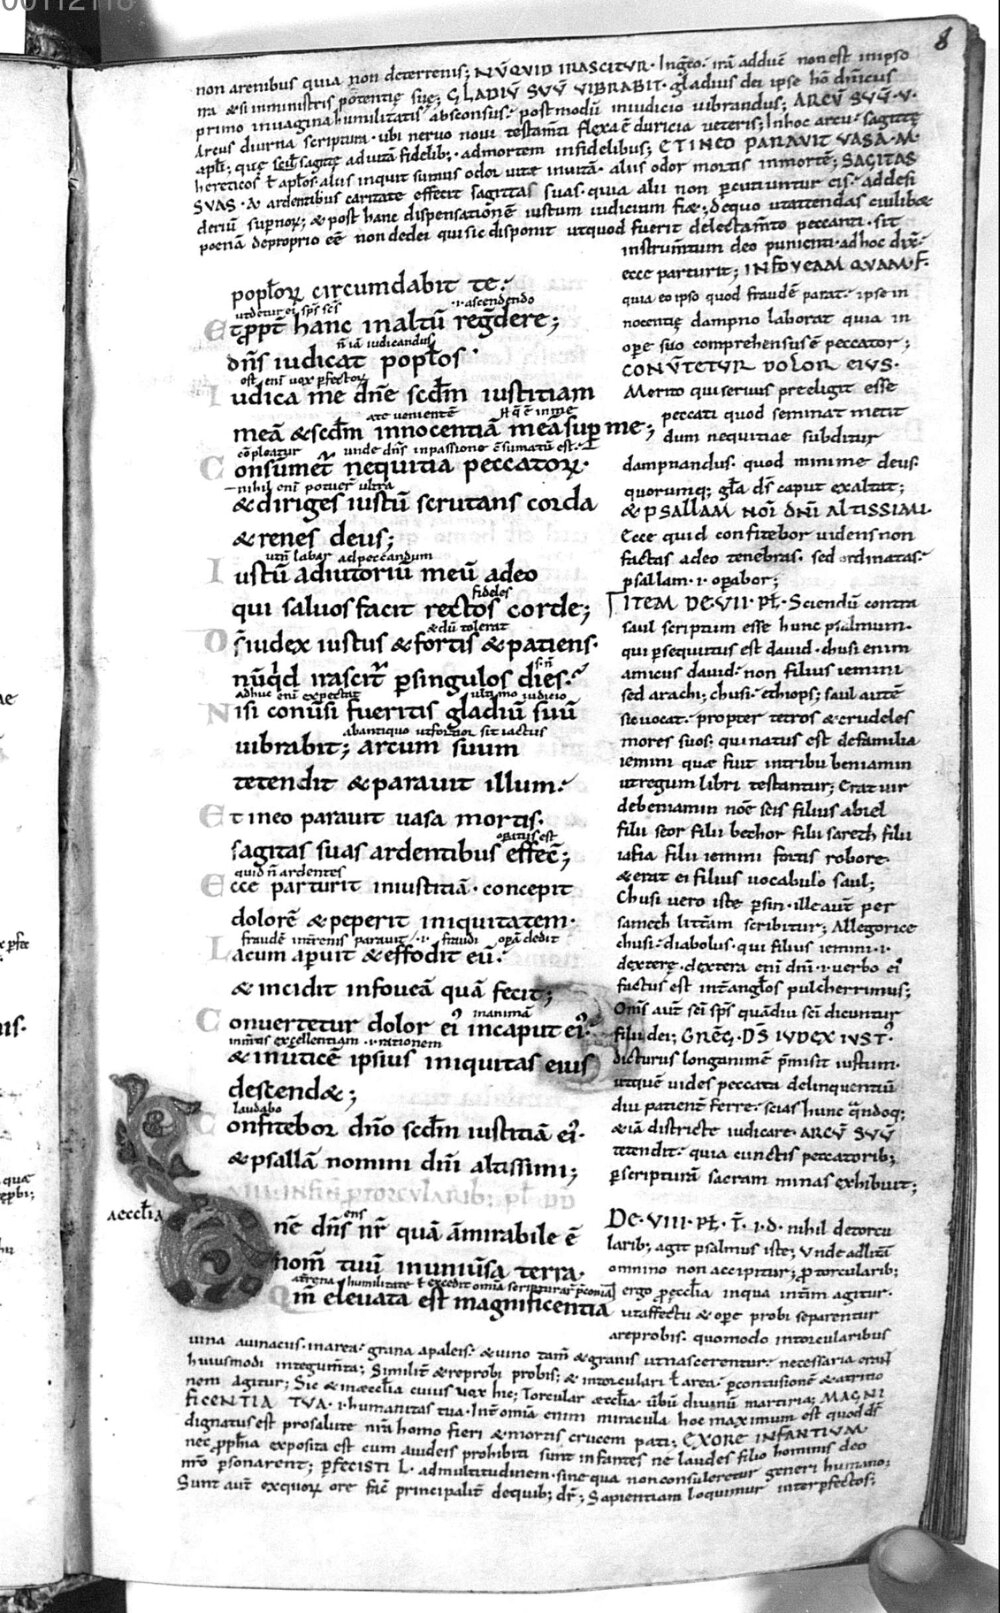 00112118
8
non arentibus quia non deterrens; NŪQVID IRASCITVR· Ingreo· irā adducē non est in ipso
ira & si in ministris potentię suę; GLADIV̄ SVV̄ VIBRABIT· gladius dei ipse ho dn̄icus
primo in uagina humilitatis absconsus· post modū in iudicio uibrandus; ARCV̄ SVV̄·V·
Arcus diuina scriptura· ubi neruo noui testam̄ti flexa ē duricia ueteris; In hoc arcu· sagittę
apl̄i; ad uitā fidelib;· ad mortem infidelibus; ET IN EO PARAVIT VASA·M·
hereticos ł apl̄os· aliis inquit sumus odor uite in uitā· aliis odor mortis in mortē; SAGITAS
SVAS· Ar ardentibus caritate effecit sagittas suas· quia alii non ꝑcutiuntur eis· ad desi
deriū supnoꝝ; & post hanc dispensationē iustum iudicium fiꝫ; de quo ut attendas cuilibꝫ
poenā de proprio eē non de dei qui sic disponit ut quod fuerit delectam̄to peccanti· sit
instrum̄tum deo punienti· ad hoc dix̄·
ecce parturit; IN FOVEAM QVAM·F·
quia eo ipso quod fraudē parat· ipse in
nocentię dampno laborat quia in
oꝑe suo comprehensus ē peccator;
CONV̄TETVR DOLOR EIVS·
Merito qui seruus preeligit esse
peccati quod seminat metit
dum nequitiae subditur
dampnandus· quod minime deus·
quorumq; gl̄a d̄s caput exaltat;
& PSALLAM NOI DN̄I ALTISSIMI·
Ecce quid confitebor uidens non
factas a deo tenebras· sed ordinatas·
psallam·i· oꝑabor;
popl̄oꝝ circumdabit te·
·i· ascendendo
Et ꝓpt̄ hanc in altū regredere;
n̄ iā iudicandus
dn̄s iudicat popl̄os·
Iudica me dn̄e scdm̄ iustitiam
meā & scdm̄ innocentiā meā suꝑ me;
unde dn̄s in passione
Consumet̄ nequitia peccatoꝝ·
nihil eni potuer̄ ultra
& diriges iustū scrutans corda
& renes deus;
ad peccandum
Iustū adiutoriū meū a deo
fideles
qui saluos facit rectos corde;
& dū tolerat
D̄s iudex iustus & fortis & patiens·
nūqd irascit̄ ꝑ singulos dies·
adhuc eni expectat ultimo iudicio
Nisi conūsi fueritis gladiū suū
ab antiquo sit iactus
uibrabit; arcum suum
tetendit & parauit illum·
Et in eo parauit uasa mortis·
oꝑatus est
sagitas suas ardentibus effec̄;
quid n̄ ardentes
Ecce parturit iniustitiā· concepit
dolorē & peperit iniquitatem·
fraudē parauit ·i· fraudi opā dedit
Lacum aꝑuit & effodit eū·
& incidit in foueā quā fecit;
in animā
Conuertetur dolor ei' in caput ei'·
·i· rationem
& in uticē ipsius iniquitas eius
descendꝫ;
laudabo
Confitebor dn̄o scdm̄ iustitiā ei'·
& psallā nomini dn̄i altissimi;
VIII· IN FINĒ PRO TORCVLARIB; PL̄ DD̄
aeccl̄ia
Dn̄e dn̄s nr̄ quā āmirabile ē
nom̄ tuū in uniūsa terra·
Qm̄ eleuata est magnificentia
ITEM DE·VII·PL̄· Sciendū contra
saul scriptum esse hunc psalmum·
qui ꝑsequutus est dauid· chusi enim
amicus dauid· non filius iemini
sed arachi; chusi· ethiops; saul autē
sic uocat· propter tetros & crudeles
mores suos; qui natus est de familia
iemini quae fuit in tribu beniamin
ut regum libri testantur; Erat uir
de beniamin noē scis filius abiel
filii seor filii bechor filii sarech filii
iafia filii iemini fortis robore·
& erat ei filius uocabulo saul;
Chusi uero iste ꝑ sin· ille aut̄ per
samech litt̄am scribitur; Allegorice
chusi· diabolus· qui filius iemini·i·
dexterę· dextera eni dn̄i·i· uerbo ei'
factus est int̄ angl̄os pulcherrimus;
Om̄s aut̄ sc̄i sps̄ quādiu sc̄i dicuntur
filii dei; GREG̅· D̄S IVDEX IVST'·
dicturus longanimē p̄misit iustum·
utque uides peccata delinquentiū
diu patient̄ ferre· scias hunc qn̄doq;
& iā districte iudicare· ARCV̄ SVV̄
tetendit· quia cunctis peccatorib;
ꝑ scripturā sacram minas exhibuit;
DE·VIII·PL̄· T̄·I·D· nihil de torcu
larib; agit psalmus iste; Vnde ad lit̄ā
omnino non accipitur; ꝓ torcularib;
ergo ꝓ ęccl̄ia inquā int̄im agitur·
ut affectu & oꝑe probi separentur
a reprobis· quomodo in torcularibus
uina a uinaciis· in area· grana a paleis· & uino tam̄ & granis ut nascerentur· necessaria erant
huiusmodi integum̄ta; Similit̄ & reprobi probis; & in torculari ł area· ꝑ contusionē & attritio
nem agitur; Sic & in aeccl̄ia cuius uox hic; Torcular aeccl̄ia· ūbū diuinū martiria; MAGNI
FICENTIA TVA·i· humanitas tua· Int̄ omia enim miracula hoc maximum est quod d̄s
dignatus est pro salute nr̄a homo fieri & mortis crucem pati; EX ORE INFANTIVM·
nec ꝓphīa exposita est cum a iudeis prohibiti sunt infantes ne laudes filio hominis deo
nr̄o ꝑsonarent; PERFECISTI L· ad multitudinem· sine qua non consuleretur generi humano;
Sunt aut̄ ex quoꝝ ore fac̄ principalit̄ de quib; dr̄; Sapientiam loquimur inter ꝑfectos;